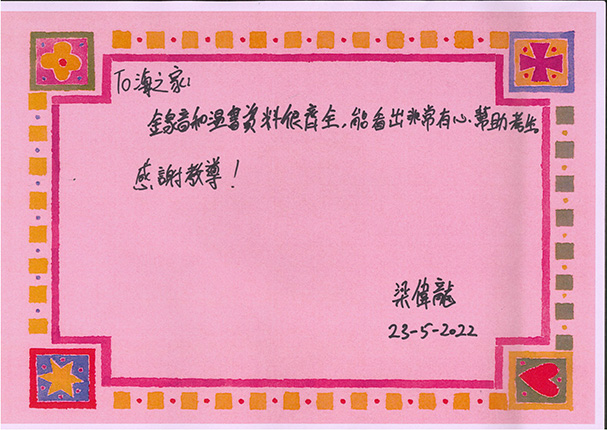 To 海之家:
錄音和溫書資料很齊全,能看出非常有心幫助考生
感謝教導!
梁偉龍
23-5-2022